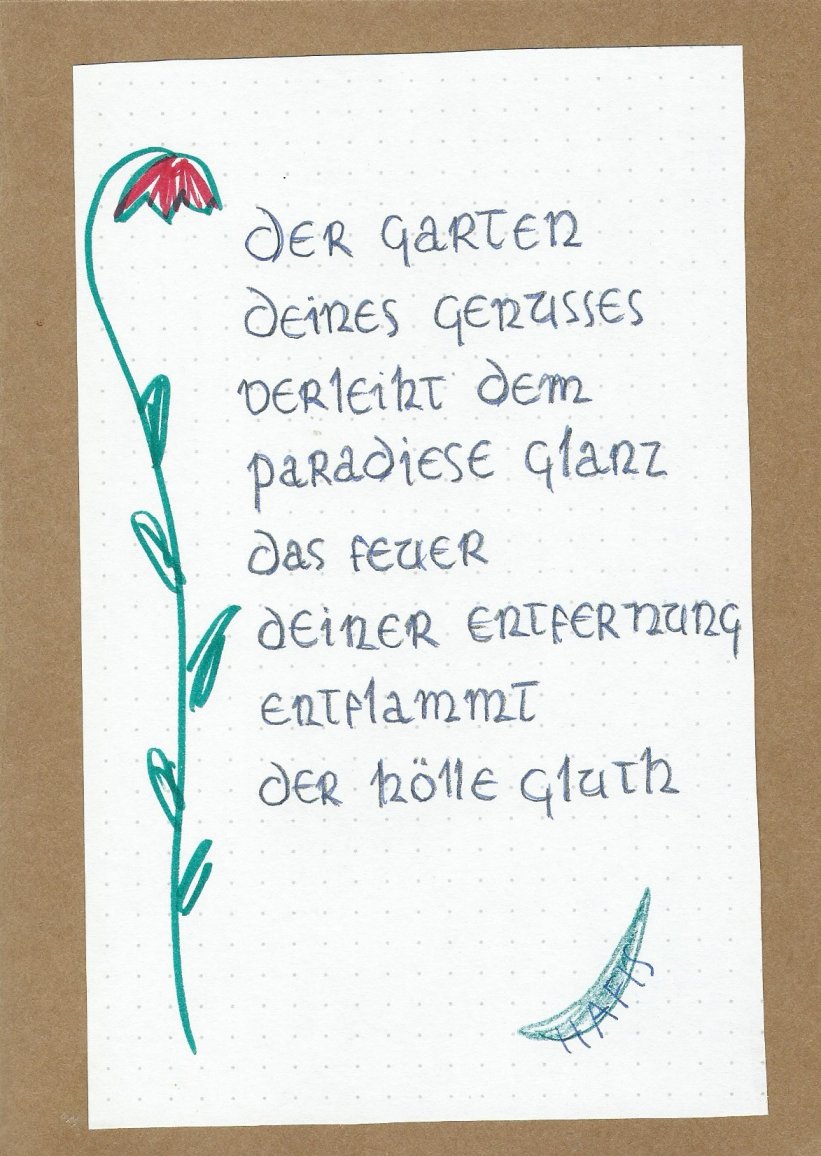 der garten
deines genusses
verleiht dem
paradiese glanz
das feuer
deiner entfernung
entflammt
der hölle gluth
HAFIS